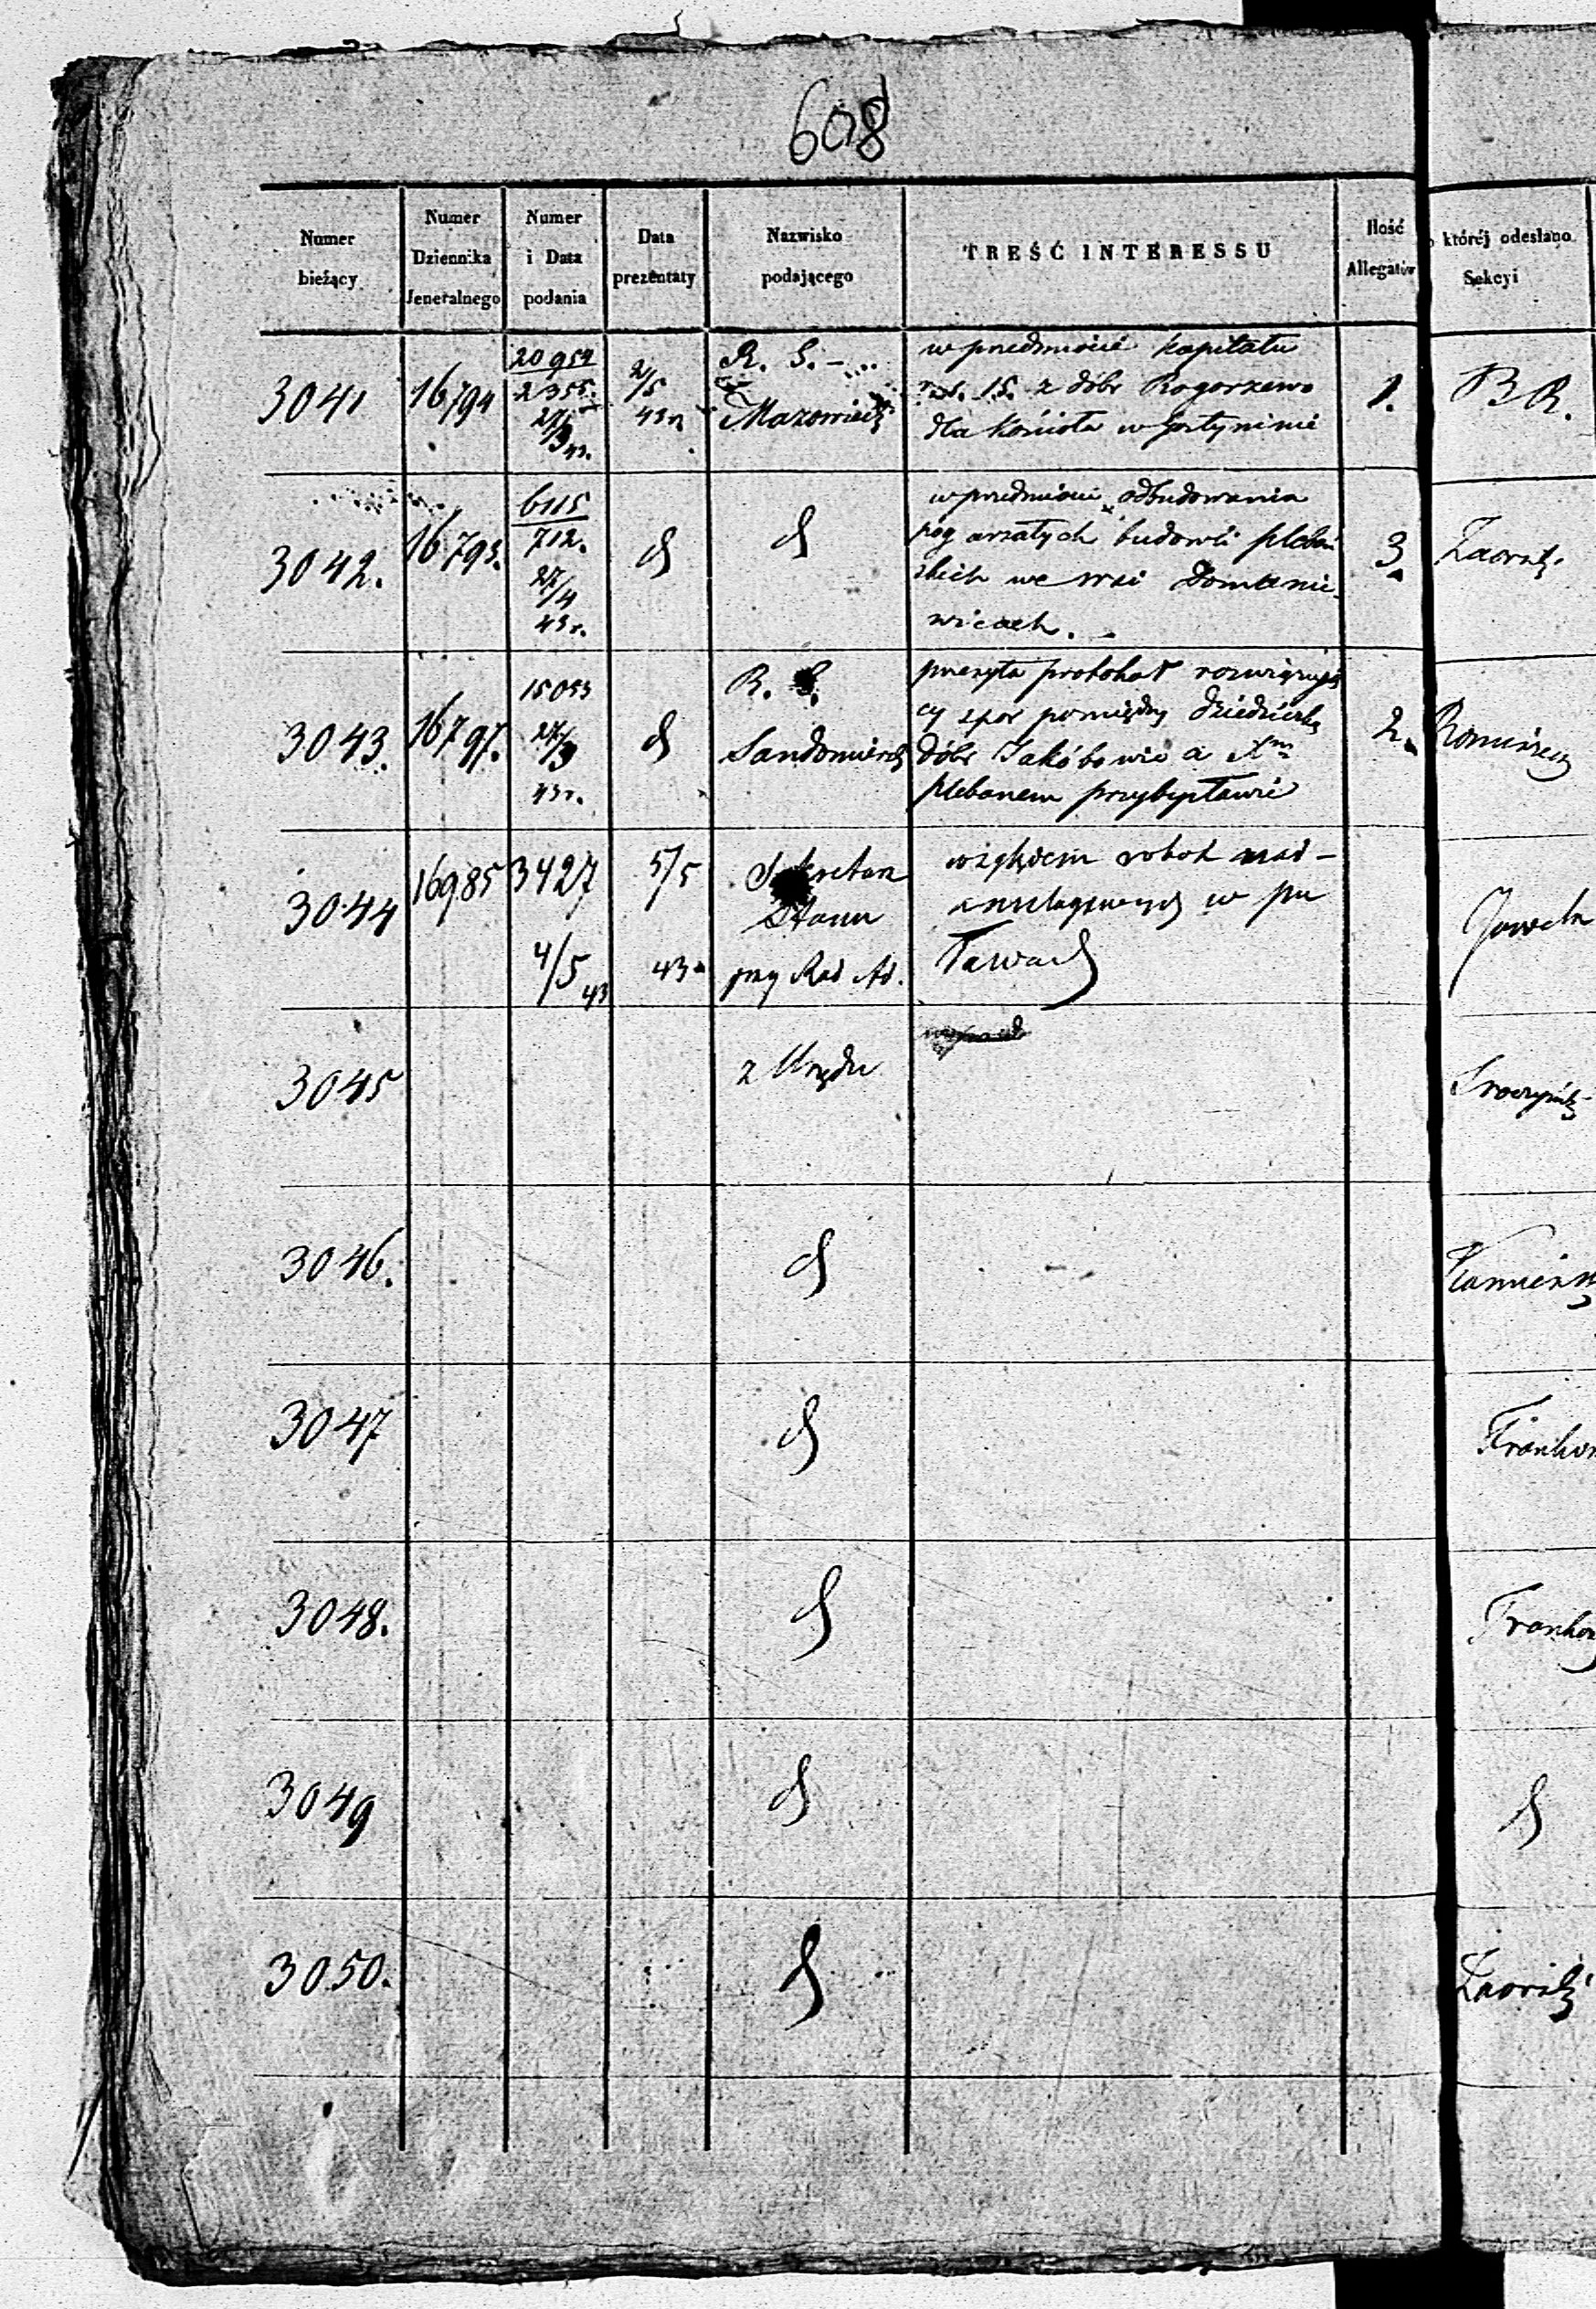 608
Numer bieżący
Numer Dziennika Jeneralnego
Numer i Data podania
Data prezentaty
Nazwisko podającego
TREŚĆ INTERESSU
Ilość Allegatów
której odesłano Sekcyi
3041
16794
20954
2355.
27/3 43.
2/5
43 r
R. G.
Mazowiecki
w przedmiocie kapitału
15. z dóbr Rogorzewo
dla kościoła w Gostyninie
1.
B R.
3042.
16795.
6115
712.
27/4
43 r.
d
d
w przedmiocie odbudowania
pogorzałych budowli plebań
skich we wsi Domanie-
wicach.
3.
3043.
16797.
15053
27/3
43 r.
d
R. G.
Sandomierski
przesyła protokół rozwiązują
cy spór pomiędzy dziedziczką
dóbr Jakóbowic a Xm
plebanem
2.
3044
16985
3427
4/5 43
5/5
43
Sekretarz
Stanu
przy Rad Ad.
względem robót nad-
w pu
ławach
3045
z Urzędu
3046.
d
3047
d
3048.
d
3049
d
d
3050.
d